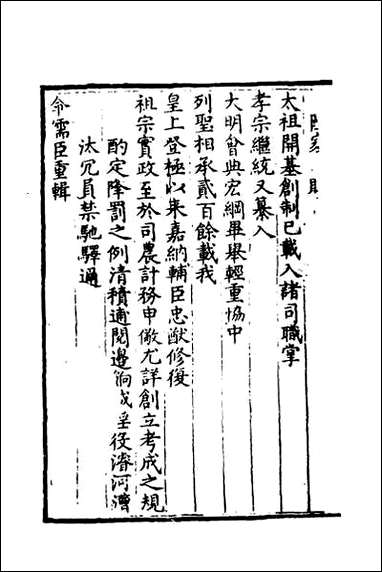 太祖開基創制已載入諸司職掌
孝宗繼統又纂入
大明會典宏綱畢舉輕重協中
列聖相承貳百餘載我
皇上登極以來嘉納輔臣忠猷修復
祖宗實政至於司農計務申儆尤詳創立考成之規
酌定降罰之例清積逋閱邊餉戍垔役濬河漕
汰冗員禁馳驛遍
令儒臣重輯